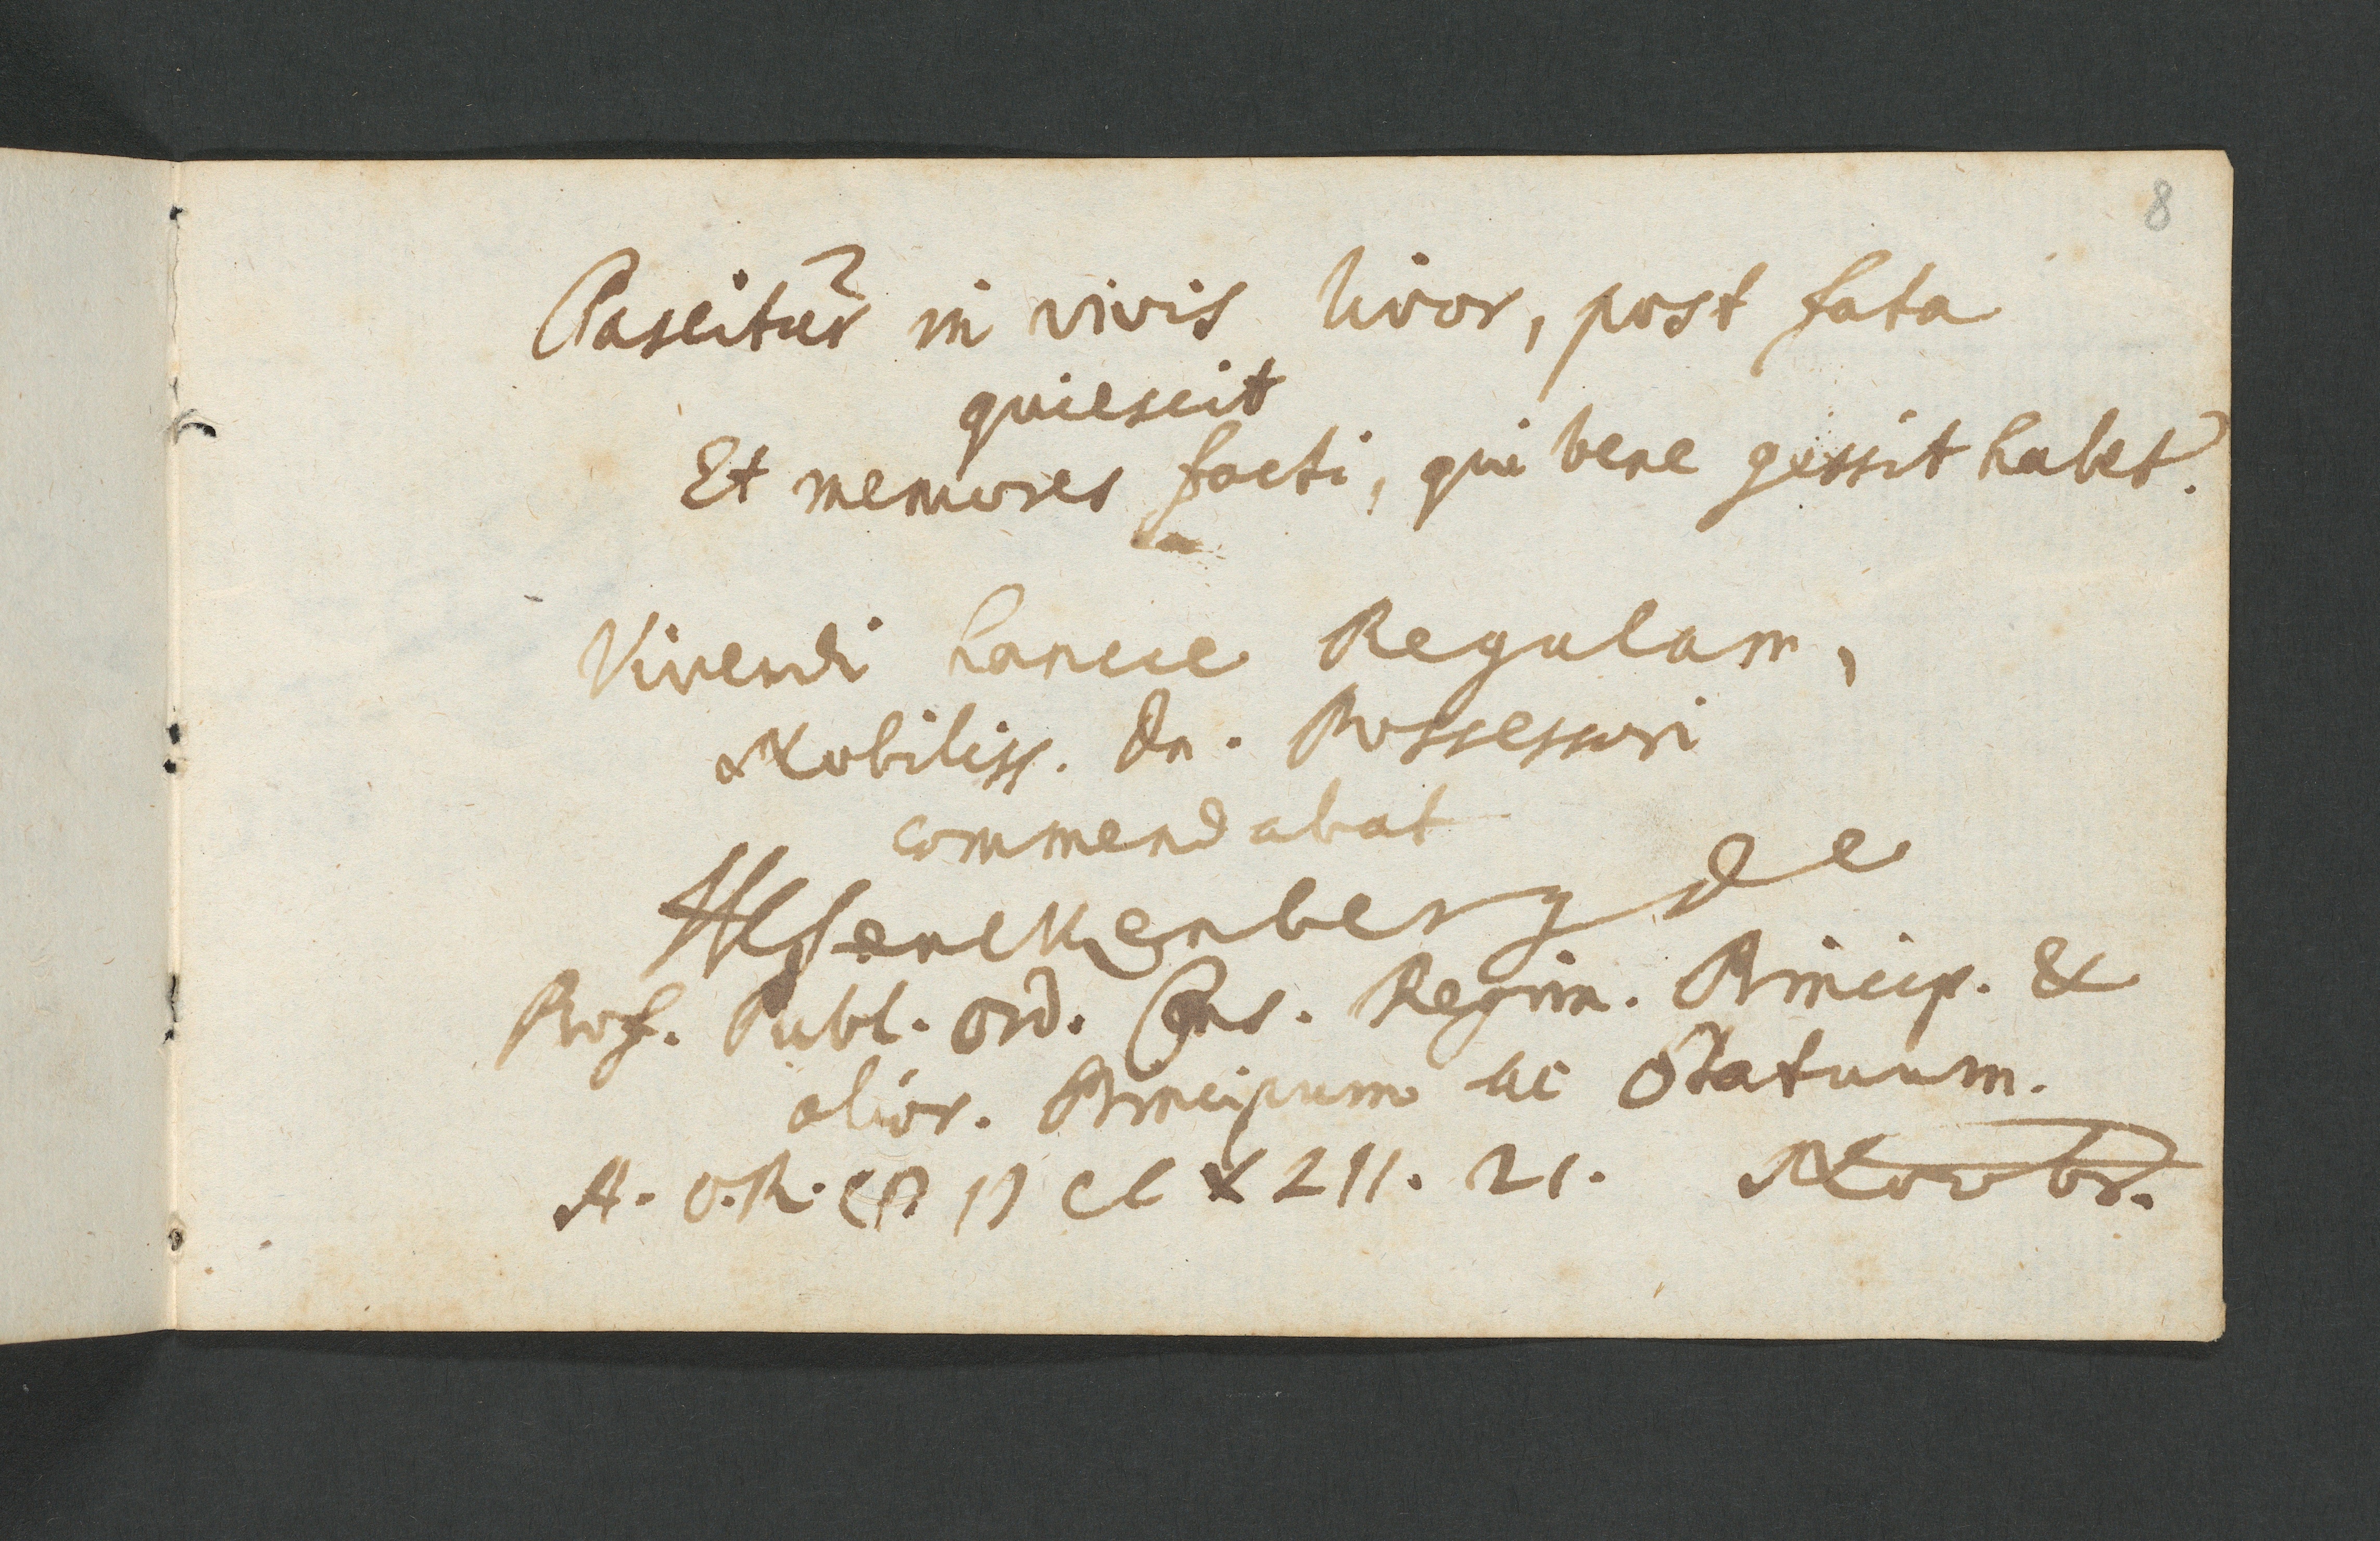 8
Pascitur in vivis livor, post fata
quiescit
Et memores facti, qui bene gessit habet.
Vivendi hancce Regulam,
Nobiliss. Dn. Possessori
commendabat
HCSenckenberg de
Prof. Publ. Ord. Cons. Regim. Princip. &
alior. Principum ac Statuum.
A. O. R. 21. Novbr.